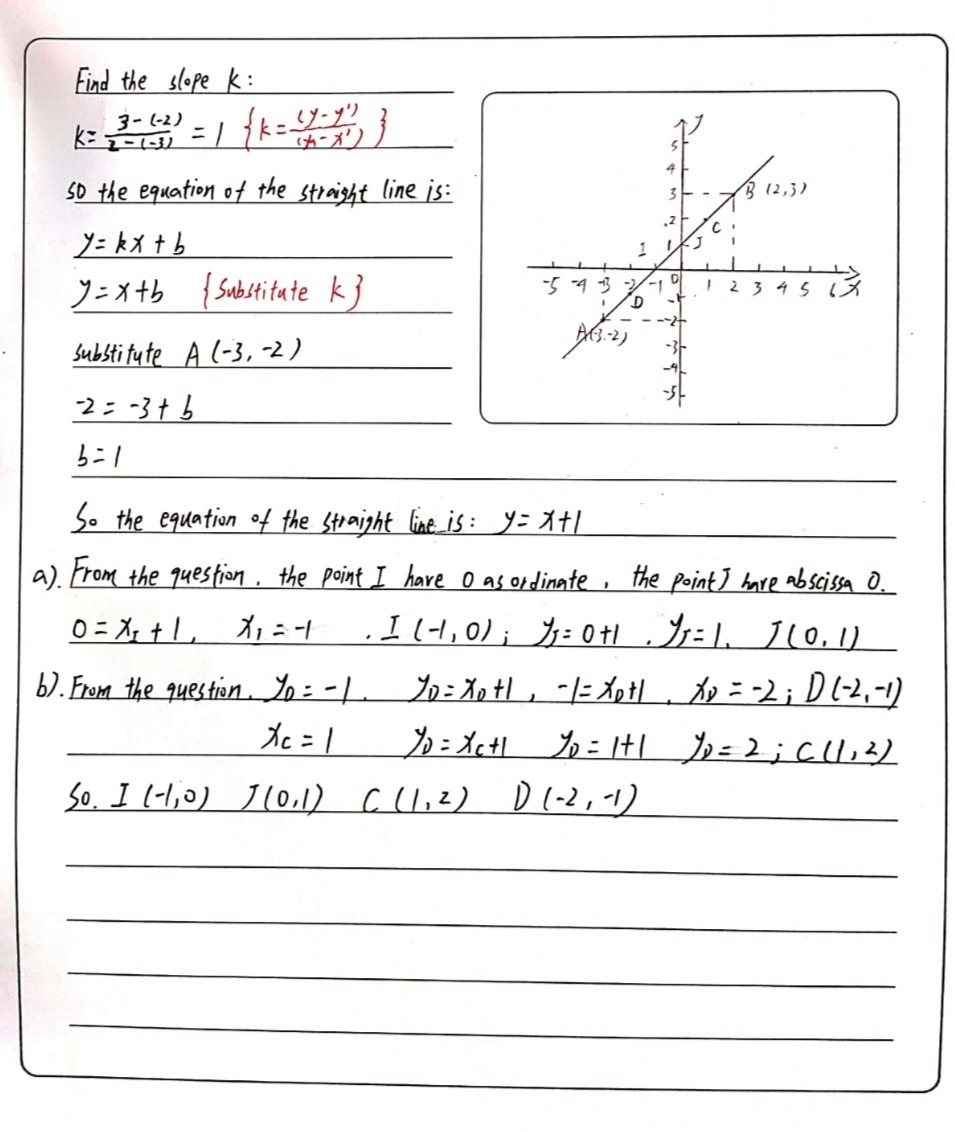 Find the slope k:
k = 3-(-2) / 2-(-3) = 1 {k = (y-y') / (x-x')}
so the equation of the straight line is:
y = kx + b
y = x+b {Substitute k}
substitute A (-3, -2)
-2 = -3 + b
b = 1
So the equation of the straight line is: y = x+1
a). From the question, the point I have 0 as ordinate, the point J have abscissa 0.
0 = x_I + 1, x_I = -1 , I (-1, 0) ; y_J = 0+1 , y_J = 1, J (0, 1)
b). From the question, y_D = -1. y_D = x_D+1, -1 = x_D+1, x_D = -2 ; D (-2, -1)
x_C = 1 y_D = x_C+1 y_D = 1+1 y_D = 2 ; C (1, 2)
So. I (-1, 0) J (0, 1) C (1, 2) D (-2, -1)
y
5
4
3 B (2,3)
2 C
I 1 J
-5 -4 -3 -2 -1 0 1 2 3 4 5 6 x
D -1
A(-3.-2) -2
-3
-4
-5